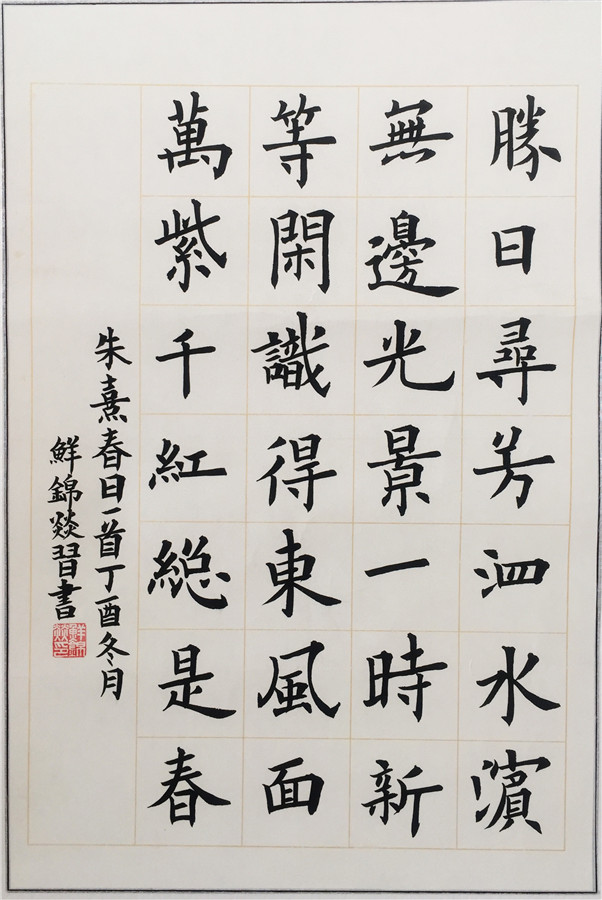 勝日尋芳泗水濱
無邊光景一時新
等閑識得東風面
萬紫千紅總是春
朱熹春日一首丁酉冬月
鮮錦燚習書
鮮錦燚印